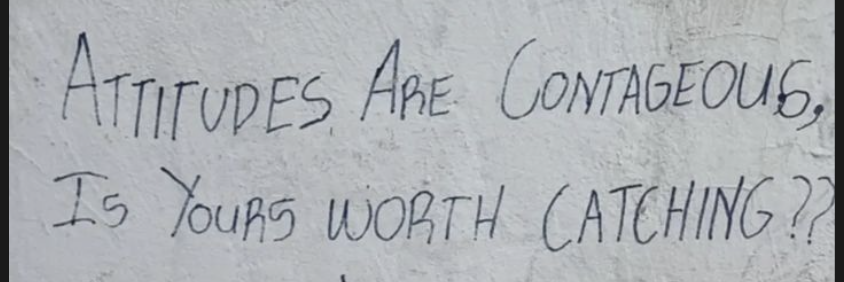 ATTITUDES ARE CONTAGEOUS,
IS YOURS WORTH CATCHING??